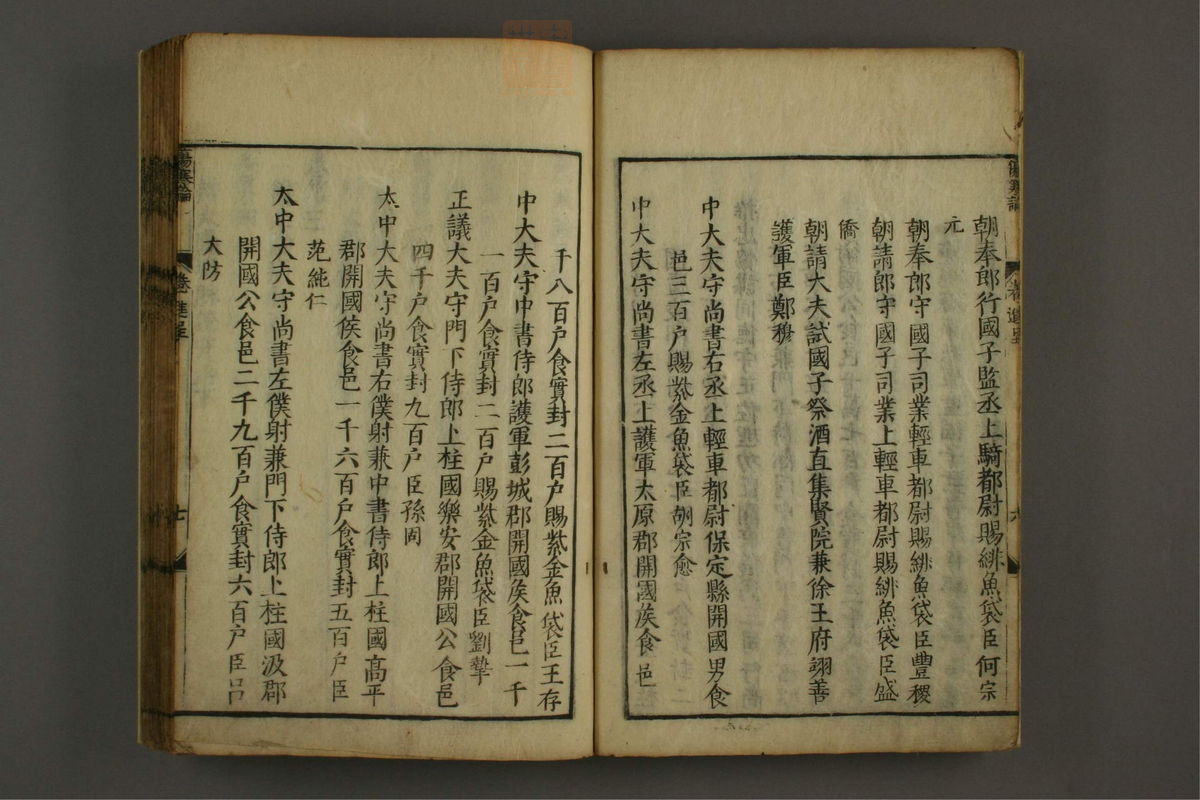 朝奉郎行國子監丞上騎都尉賜緋魚袋臣何宗
元
朝奉郎守國子司業輕車都尉賜緋魚袋臣豐稷
朝請郎守國子司業上輕車都尉賜緋魚袋臣盛
僑
朝請大夫試國子祭酒直集賢院兼徐王府翊善
護軍臣鄭穆
中大夫守尚書右丞上輕車都尉保定縣開國男食
邑三百戶賜紫金魚袋臣胡宗愈
中大夫守尚書左丞上護軍太原郡開國矦食邑
千八百戶食實封二百戶賜紫金魚袋臣王存
中大夫守中書侍郎護軍彭城郡開國矦食邑一千
一百戶食實封二百戶賜紫金魚袋臣劉摯
正議大夫守門下侍郎上柱國樂安郡開國公食邑
四千戶食實封九百戶臣孫固
太中大夫守尚書右僕射兼中書侍郎上柱國高平
郡開國矦食邑一千六百戶食實封五百戶臣
范純仁
太中大夫守尚書左僕射兼門下侍郎上柱國汲郡
開國公食邑二千九百戶食實封六百戶臣呂
大防
傷寒論
七